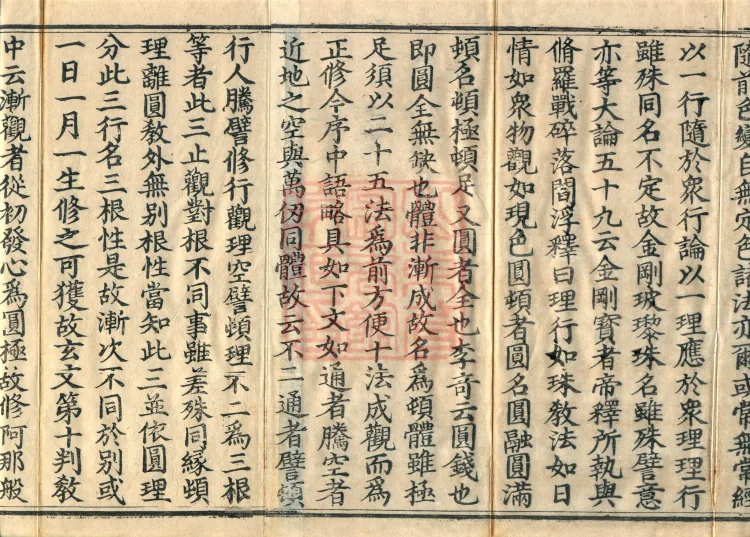 隨前色變自無定色諸法亦爾或常無常經
以一行隨於衆行論以一理應於衆理理行
雖殊同名不定故金剛玻瓈珠名雖殊譬意
亦等大論五十九云金剛寶者帝釋所執與
脩羅戰碎落閻浮釋曰理行如珠教法如日
情如衆物觀如現色圓頓者圓名圓融圓滿
頓名頓極頓足又圓者全也李奇云圓錢也
即圓全無缺也體非漸成故名爲頓體雖極
足須以二十五法爲前方便十法成觀而爲
正修今序中語略具如下文如通者騰空者
近地之空與萬仞同體故云不二通者譬頓
行人騰譬修行觀理空譬頓理不二爲三根
等者此三止觀對根不同事雖差殊同緣頓
理離圓教外無别根性當知此三並依圓理
分此三行名三根性是故漸次不同於别或
一日一月一生修之可獲故玄文第十判教
中云漸觀者從初發心爲圓極故修阿那般